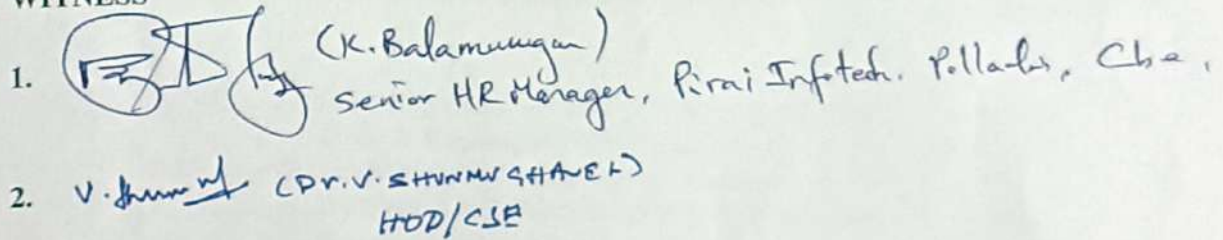 WITNESS
1. (K. Balamurugan)
Senior HR Manager, Pirai Infotech. Pollachi, Cbe,
2. V. (Dr. V. SHUNMUGHAVEL)
HOD/CSE